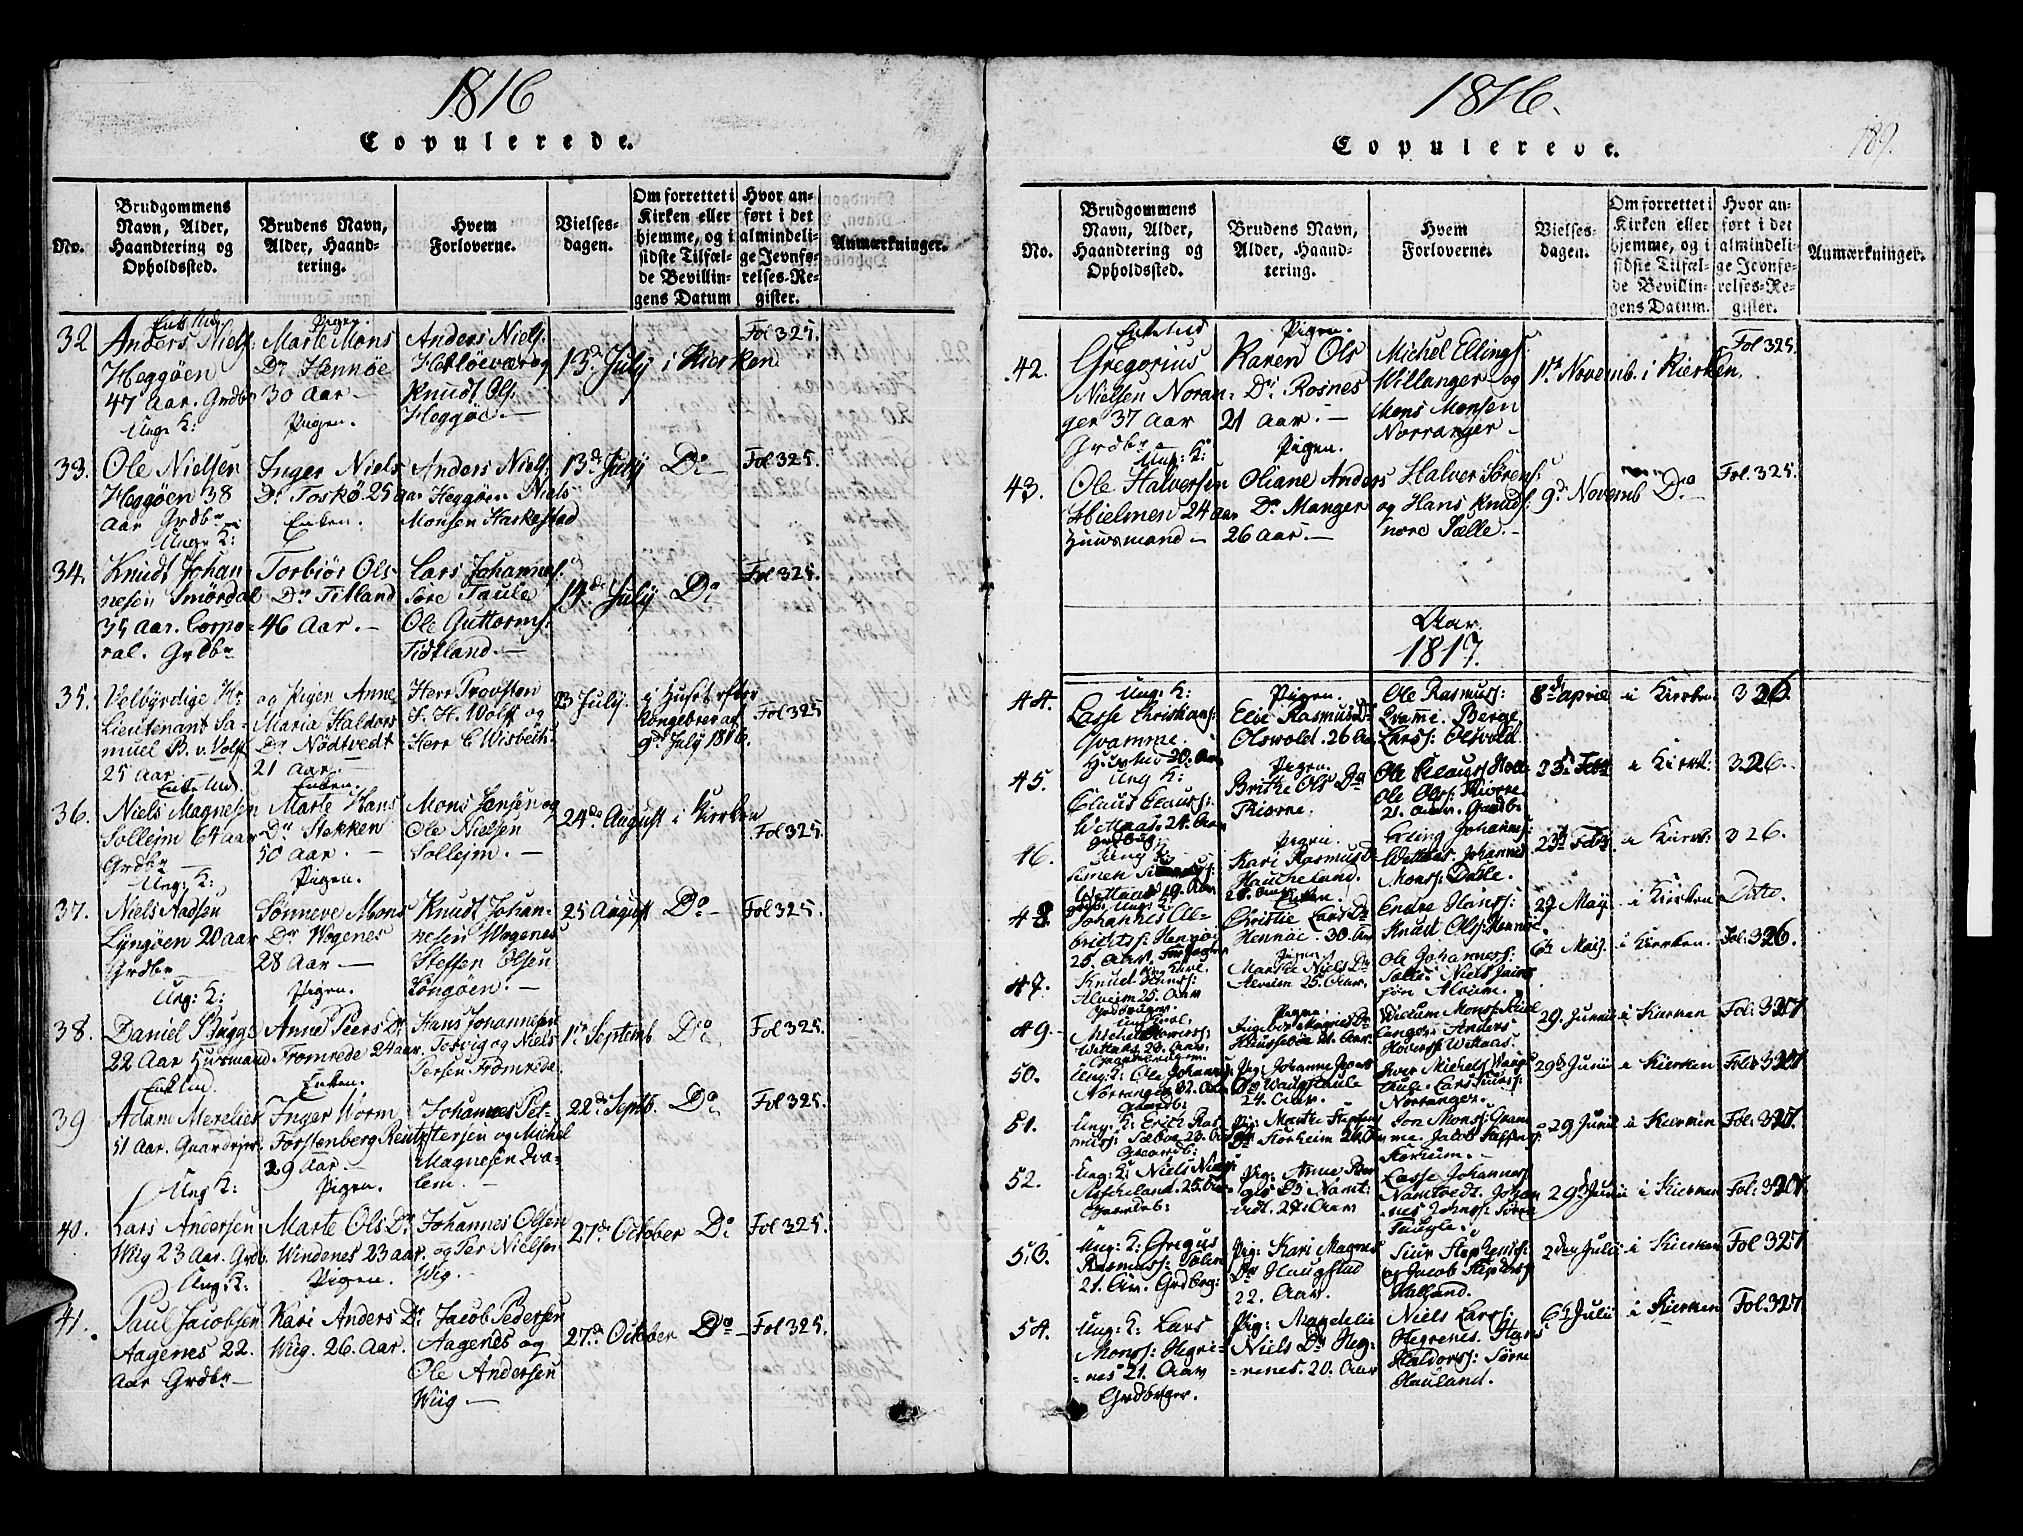 1816
Copulerede.
No.
Brudgommens Navn, Alder, Haandtering og Opholdssted.
Brudens Navn, Alder, Haandtering.
Hvem Forloverne.
Vielsesdagen.
Om forrettet i Kirken eller hjemme, og i sidste Tilfælde Bevillingens Datum
Hvor anført i det almindelige Jevnførelses-Register.
Anmærkninger.
32
Enke Md
Anders Niels:
Heggøen
47 Aar. Grdbr
Pigen.
Marte Mons
Dr Hennøe
30 Aar —
Anders Niels:
Herløevær og
Knudt Ols:
Heggøe. —
13de July i Kierken
Fol 325.
33.
Ung: K:
Ole Nielsen
Heggøen 38
Aar Grdbr
Pigen.
Inger Niels
Dr Toskø 25 aar
Anders Niels:
Heggøen Niels
Monsen Harkestad
13de July
Do —
Fol 325.
34.
Ung: K:
Knudt Johan
nesen Smørdal
35 Aar. Corpo=
ral. Grdbr
Enken.
Torbiør Ols
Dr Titland
46 Aar. —
Lars Johannes:
Søre Taule
Ole Guttorms:
Tidtland. —
14de July
Do
Fol 325.
35.
Velbyrdige Hr
Lieutenant Sa-
muel B. v. Wolf
25 Aar
og Pigen Anne
Maria Haldors
Dr Nødtvedt
21 Aar. —
Herr Provsten
S. H. Wolff og
Herr C Wisbech:
23 July.
i Huset efter
Kongebrev af
9de July 1816.
Fol 325
36.
Enke Md.
Niels Magnesen
Solleim 64 aar
Grdbr
Enken.
Marte Hans
Dr Stekken
50 Aar. —
Mons Jensen og
Ole Nielsen
Solleim. —
24de August i Kirken
Fol 325.
37.
Ung: K:
Niels Aadsen
Lyngøen 20 aar
Grdbr
Pigen.
Sønneve Mons
Dr Wogenes
28 Aar —
Knudt Johan-
nesen Wogenes
Steffen Olsen
Longøen. —
25 August
Do —
Fol 325.
38.
Ung: K:
Daniel Bugge
22 Aar Huusmand
Pigen.
Anne Peers Dr
Fromrede 24 aar.
Hans Johannesen
Totvig og Niels
Persen Fromrede.
1ste Septemb.
Do
Fol 325.
39
Enke Md.
Adam Merelier
51 Aar. Gaardbrgr.
Enken.
Inger Worm
Forstenberg Reutz
29 Aar —
Johannes Pet-
tersen og Michel
Magnesen Qva-
lem. —
22de Septb.
Do
Fol 325.
40.
Ung K:
Lars Andersen
Wiig 23 Aar. Grdb.
Pigen.
Marte Ols Dr
Windenes 23 aar.
Johannes Olsen
og Per Nielsen
Wig.
27de October
Do
Fol 325.
41.
Ung: K:
Paul Jacobsen
Aagenes 22.
Aar Grdbr —
Pigen.
Kari Anders Dr
Wiig. 26. Aar.
Jacob Pedersen
Aagenes og
Ole Andersen
Wiig —
27de October
Do —
Fol 325.
1816.
Copulerede.
189.
No.
Brudgommens Navn, Alder, Haandtering og Opholdssted.
Brudens Navn, Alder, Haandtering.
Hvem Forloverne.
Vielsesdagen.
Om forrettet i Kirken eller hjemme, og i sidste Tilfælde Bevillingens Datum.
Hvor anført i det almindelige Jevnførelses-Register.
Anmærkninger.
42.
Enke Md
Gregorius
Nielsen Noran=
ger 37 Aar
Grdbr
Pigen.
Karen Ols
Dr Rosnes
21 aar. —
Michel Ellings:
Willanger og
Mons Monsen
Norranger —
1ste Novemb. i Kierken.
Fol 325.
43.
Ung: K:
Ole Halversen
Hielmen 24 aar
Huusmand —
Pigen.
Oliane Anders
Dr Manger
26 Aar. —
Halver Sørens:
og Hans Knuds:
nore Sælle. —
9de Novemb
Do —
Fol. 325.
Aar.
1817.
44.
Ung: K:
Lasse Christians:
Qvamme.
20. Aar
Pigen.
Elie Rasmus Dr
Olswold. 26 Aar
Ole Rasmuss:
Qvamme. Berge
Larss: Olsvold.
8de april
i Kierken:
326.
45.
Ung K:
Claus Clauss:
Wettaas. 24. Aar
Grdbrug:
Pigen.
Brithe Ols Dr
Kiorne.
Ole Clauss:
Ole Olss: Kiorne
23de Febr
i Kirk:
326.
46.
Ung K:
Simen
Wettaas 19. Aar
Pigen.
Kari Rasmus Dr
Haucheland.
Erling Johanns:
Wettaas. Johannes
Monss: Dalle.
23de Febr
i Kirk:
326.
48.
Ung: K:
Johannes Al-
brichtss: Hennøe
25 Aar,
Enken.
Christie Lars Dr
Hennøe. 30. Aar
Endre Hanss:
Knud Olss: Hennøe.
27 May.
i Kierken
Ditto.
47.
Knud Hanss:
Alveim 25. Aar
Grdbruger
Pigen
Marthe Niels Dr
Alveim 25. Aar.
Ole Johanness:
Niels
Alveim.
6te Maij.
i Kierken.
Fol: 326.
49.
Ung Karl.
Michel
Wettaas 23. Aar.
Gaardbruger.
Pigen.
Ingebor Magnes Dr
21. Aar.
Monss:
Anders
Wettaas.
29. Junii
i Kierken
Fol: 327
50.
Ung: K: Ole Johanness:
Norranger 32. Aar.
Gaardb:
Pig: Johanne Ivers
Dr
24. Aar.
Iver Michels
Lars
Norranger.
29de Junii
i Kierken
Fol: 327
51.
Ung: K: Erich Ras-
muss: Sæbøe 23. Aar
Gaardb:
Pig: Marthe Stephens
Dr Storheim 26. Aar
Jon Monss: Qvam-
me. Jacob Steffens:
Storheim. —
29 Junii
i Kierken
Fol: 327.
52.
Ung: K: Niels Niels:
Ascheland. 25. Aar
Gaardeb:
Pig: Anne Peer
Dr Namt:
vedt. 27. Aar
Lasse Johanness
Namtvedt. Johan-
nes Johns: Søre
Taugle.
29de Junii
i Kierken
Fol: 327.
53.
Ung: K: Gregus
Rasmuss:
21. Aar. Grdbrg:
Pig: Kari Magnes
Dr Haugstad
22. Aar.
Siur Stephenss:
og Jacob Stephens:
Halland.
2den Julii
i Kierken
Fol 327
54.
Ung: K: Lars
Monss: Hegre-
=nes 21. Aar
Grdbrger.
Pig: Magdelie
Niels Dr Heg-
-renes. 20. Aar
Niels Larss:
Hegrenes. Hans
Haldorss: Sørre
Hauland.
6te Julii
i Kierken
Fol. 327